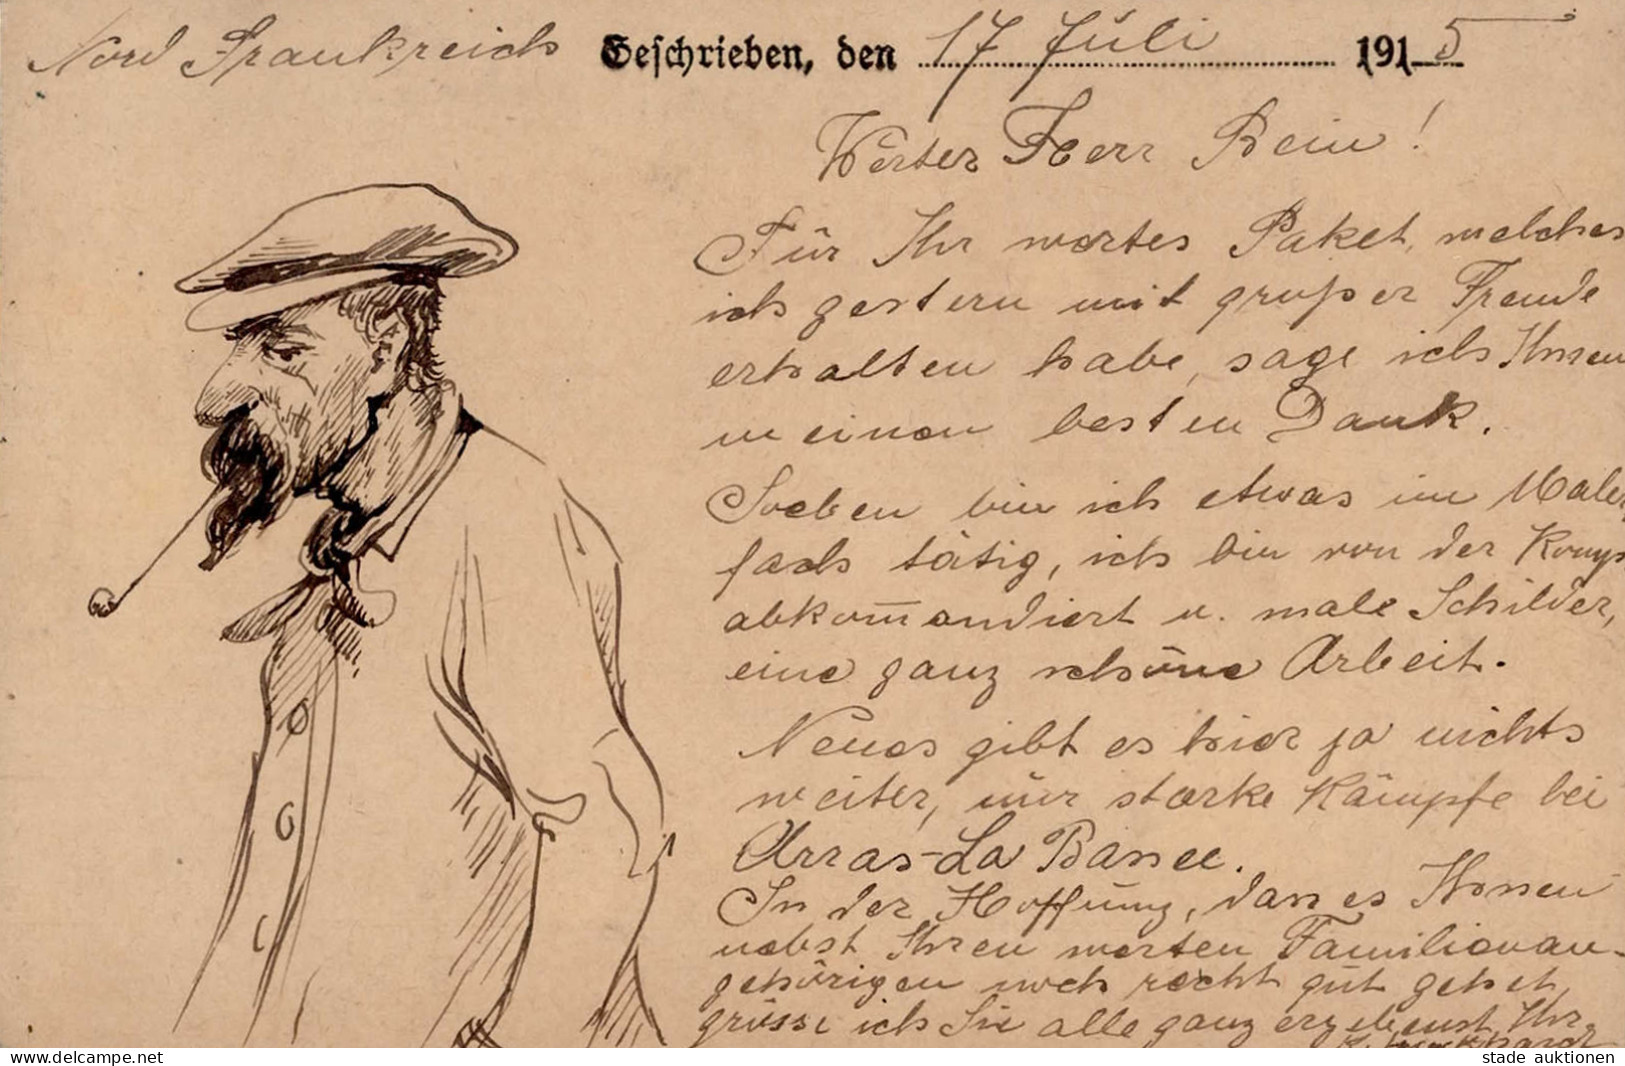 Nord Frankreich Geschrieben, den 17 Juli 1915
Werter Herr Bein!
Für Ihr wertes Paket, welches
ich gestern mit großer Freude
erhalten habe, sage ich Ihnen
meinen besten Dank.
Soeben bin ich etwas im Maler
fach tätig, ich bin von der Komp
abkom̄andiert u. male Schilder,
eine ganz schöne Arbeit.
Neues gibt es hier ja nichts
weiter, nur starke Kämpfe bei
Arras-La Bassee.
In der Hoffnung, dass es Ihnen
nebst Ihren werten Familienan-
gehörigen noch recht gut gehet,
grüsse ich Sie alle ganz ergebenst, Ihr
www.delcampe.net
stade auktionen